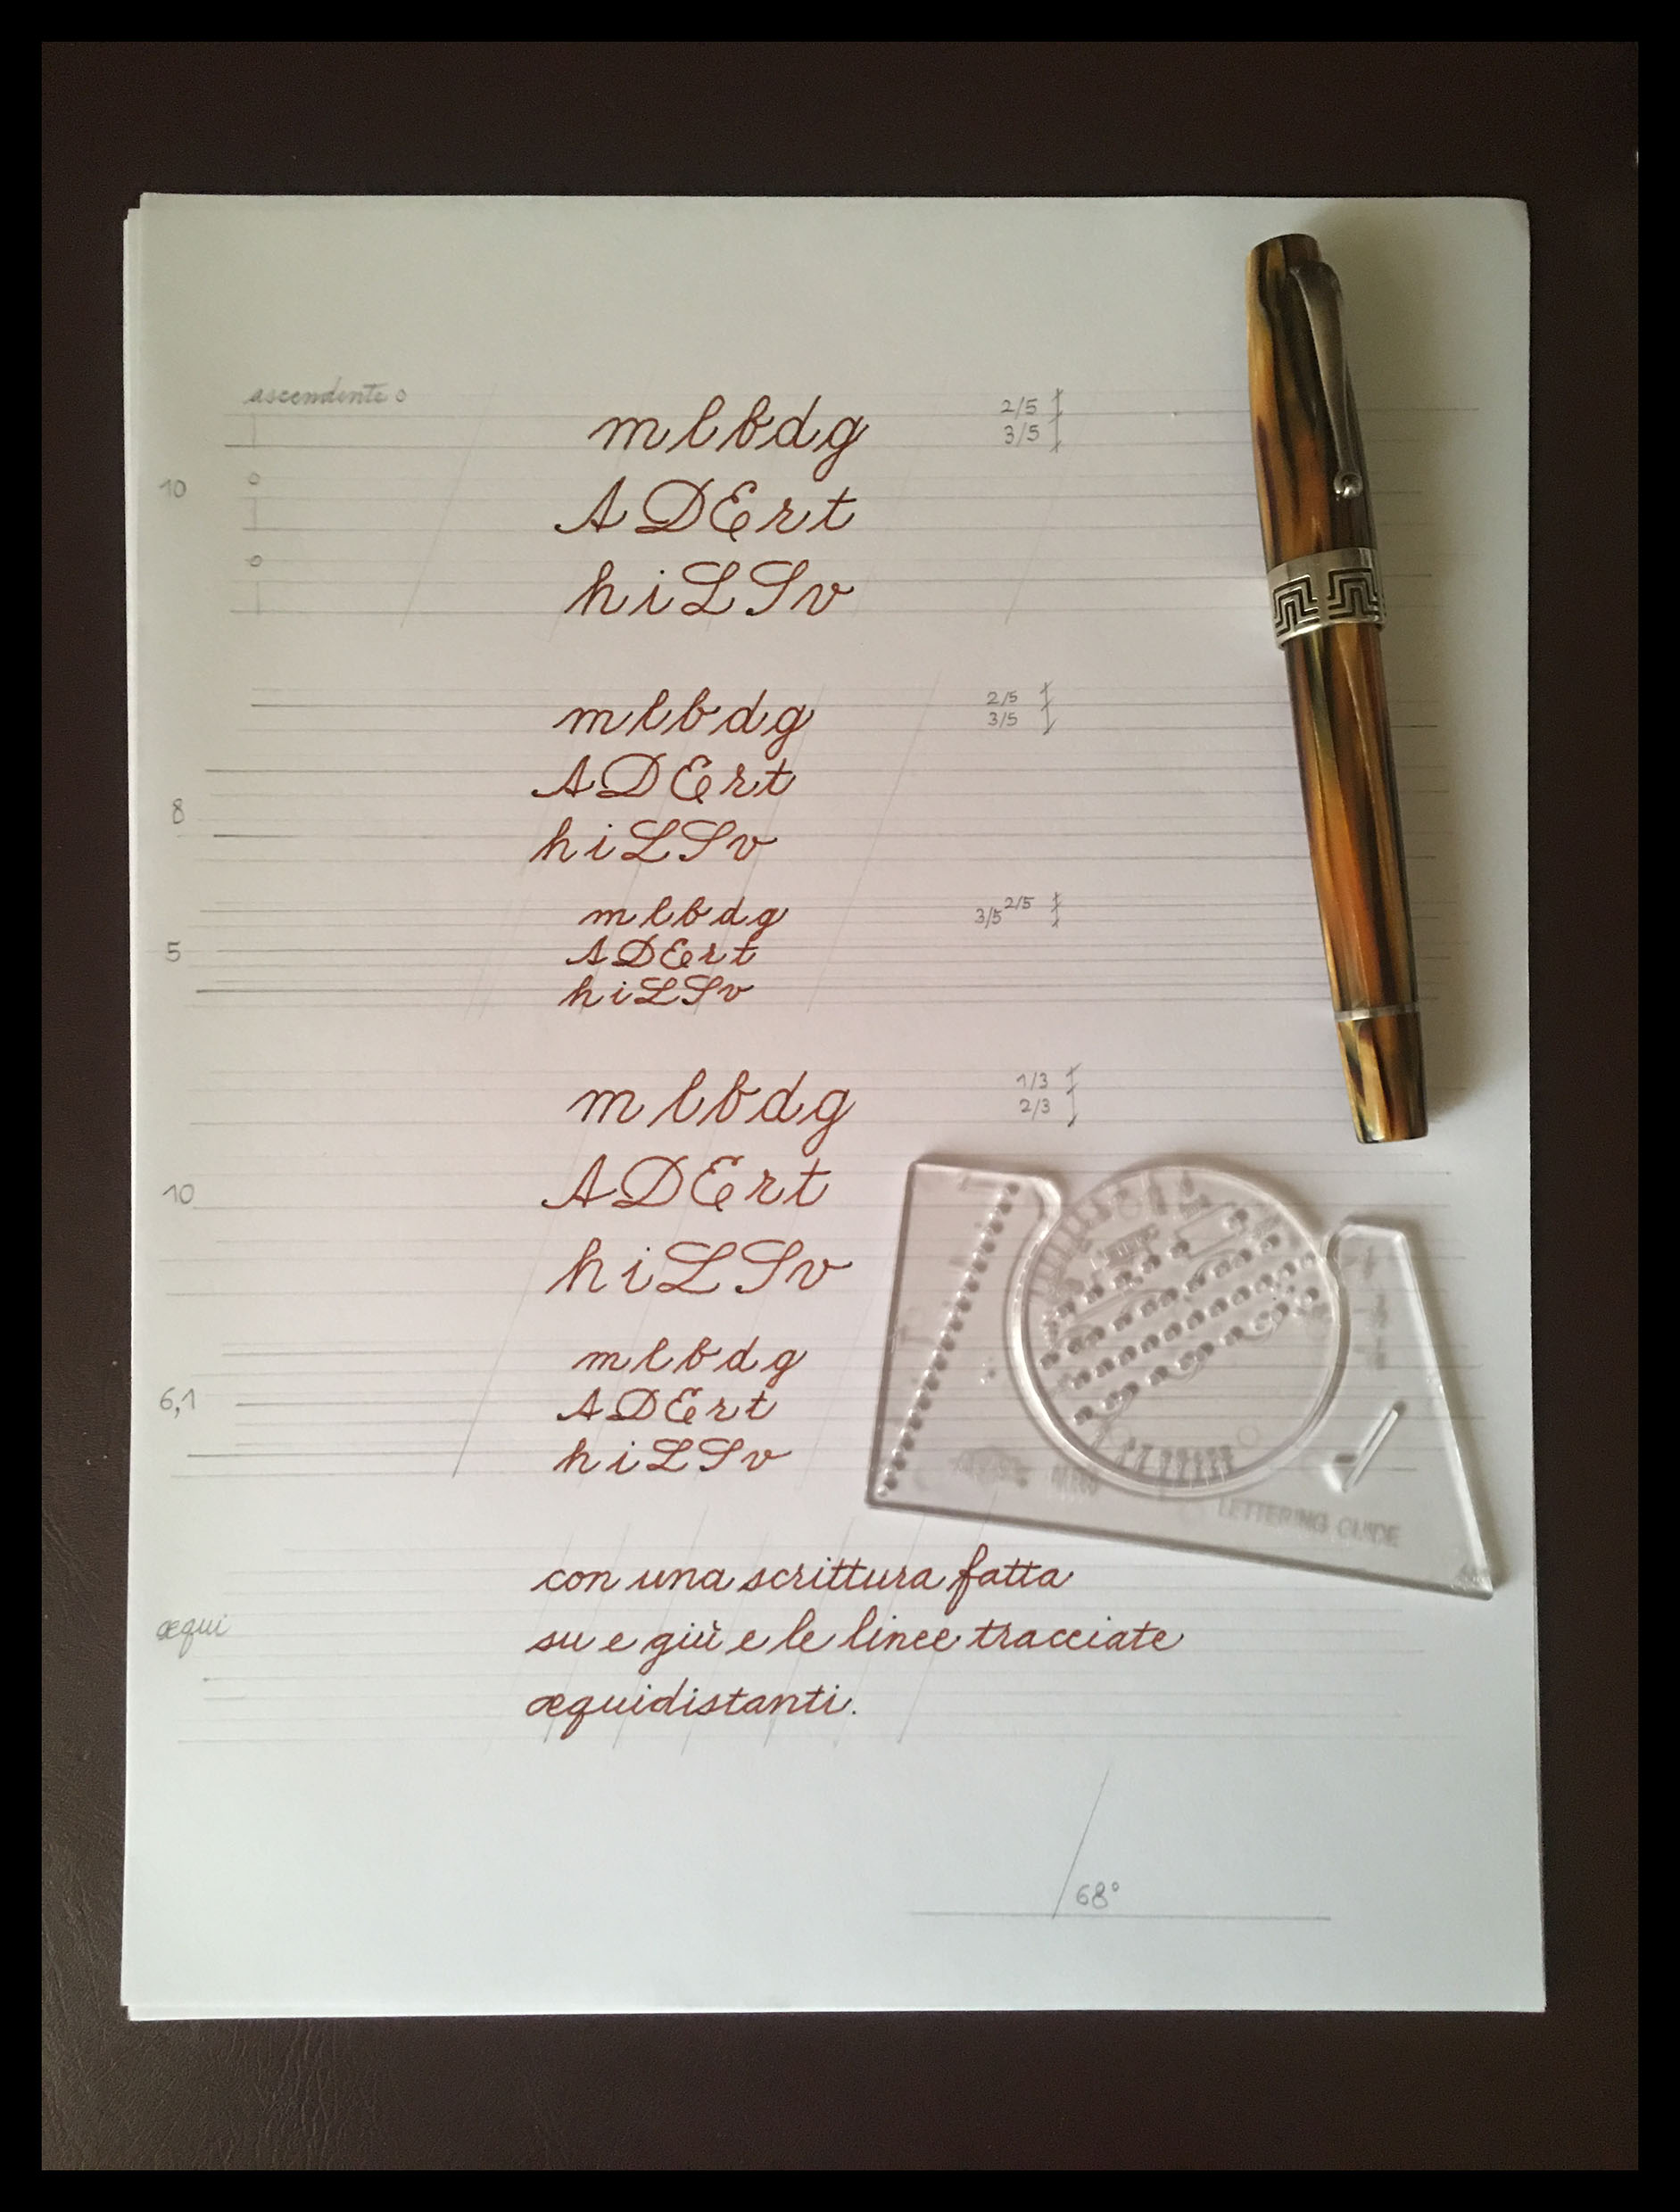 ascendente o
mlbdg 2/5
3/5
10 o
ADErt
o
hiLSv
mlbdg 2/5
3/5
ADErt
8
hiLSv
mlbdg 3/5 2/5
5 ADErt
hiLSv
mlbdg 1/3
2/3
10 ADErt
hiLSv
mlbdg
6,1 ADErt
hiLSv
LETTERING GUIDE
con una scrittura fatta
æqui su e giù e le linee tracciate
æquidistanti.
68°